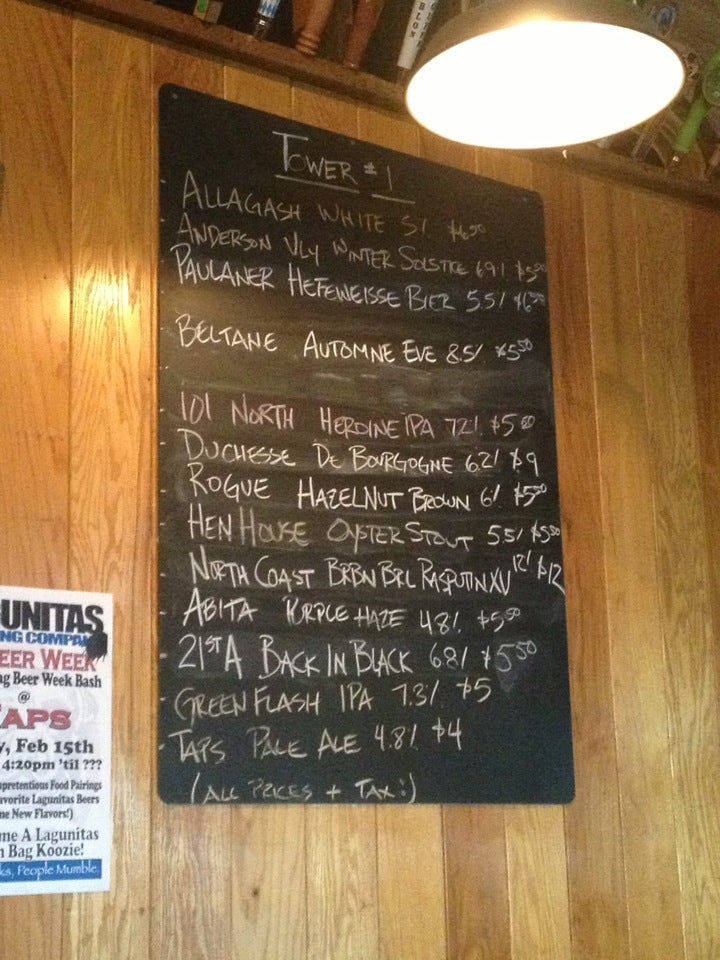 TOWER #1
ALLAGASH WHITE 5% $6.50
ANDERSON VLY WINTER SOLSTICE 6.9% $5.50
PAULANER HEFEWEISSE BIER 5.5% $6.50
BELTANE AUTOMNE EVE 8.5% $5.50
101 NORTH HEROINE IPA 7.2% $5.50
DUCHESSE DE BOURGOGNE 6.2% $9
ROGUE HAZELNUT BROWN 6% $5.50
HENHOUSE OYSTER STOUT 5.5% $5.50
NORTH COAST BRBN BRL RASPUTIN XV 12% $12
ABITA PURPLE HAZE 4.8% $5.50
21ST A BACK IN BLACK 6.8% $5.50
GREEN FLASH IPA 7.3% $5
TAPS PALE ALE 4.8% $4
(ALL PRICES + TAX!)
UNITAS
NG COMPA
EER WEEK
ng Beer Week Bash
@
TAPS
y, Feb 15th
4:20pm 'til ???
npretentious Food Pairings
avorite Lagunitas Beers
ne New Flavors!)
me A Lagunitas
n Bag Koozie!
ks, People Mumble.